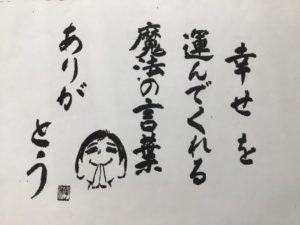 幸せを
運んでくれる
魔法の言葉
ありがとう